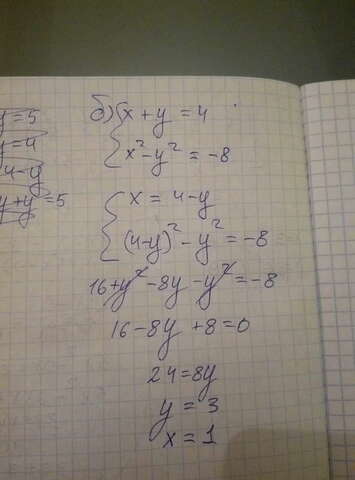 y = 5
y = 4
4 - y
y + y = 5
б) { x + y = 4
x² - y² = -8
{ x = 4 - y
(4-y)² - y² = -8
16 + y² - 8y - y² = -8
16 - 8y + 8 = 0
24 = 8y
y = 3
x = 1